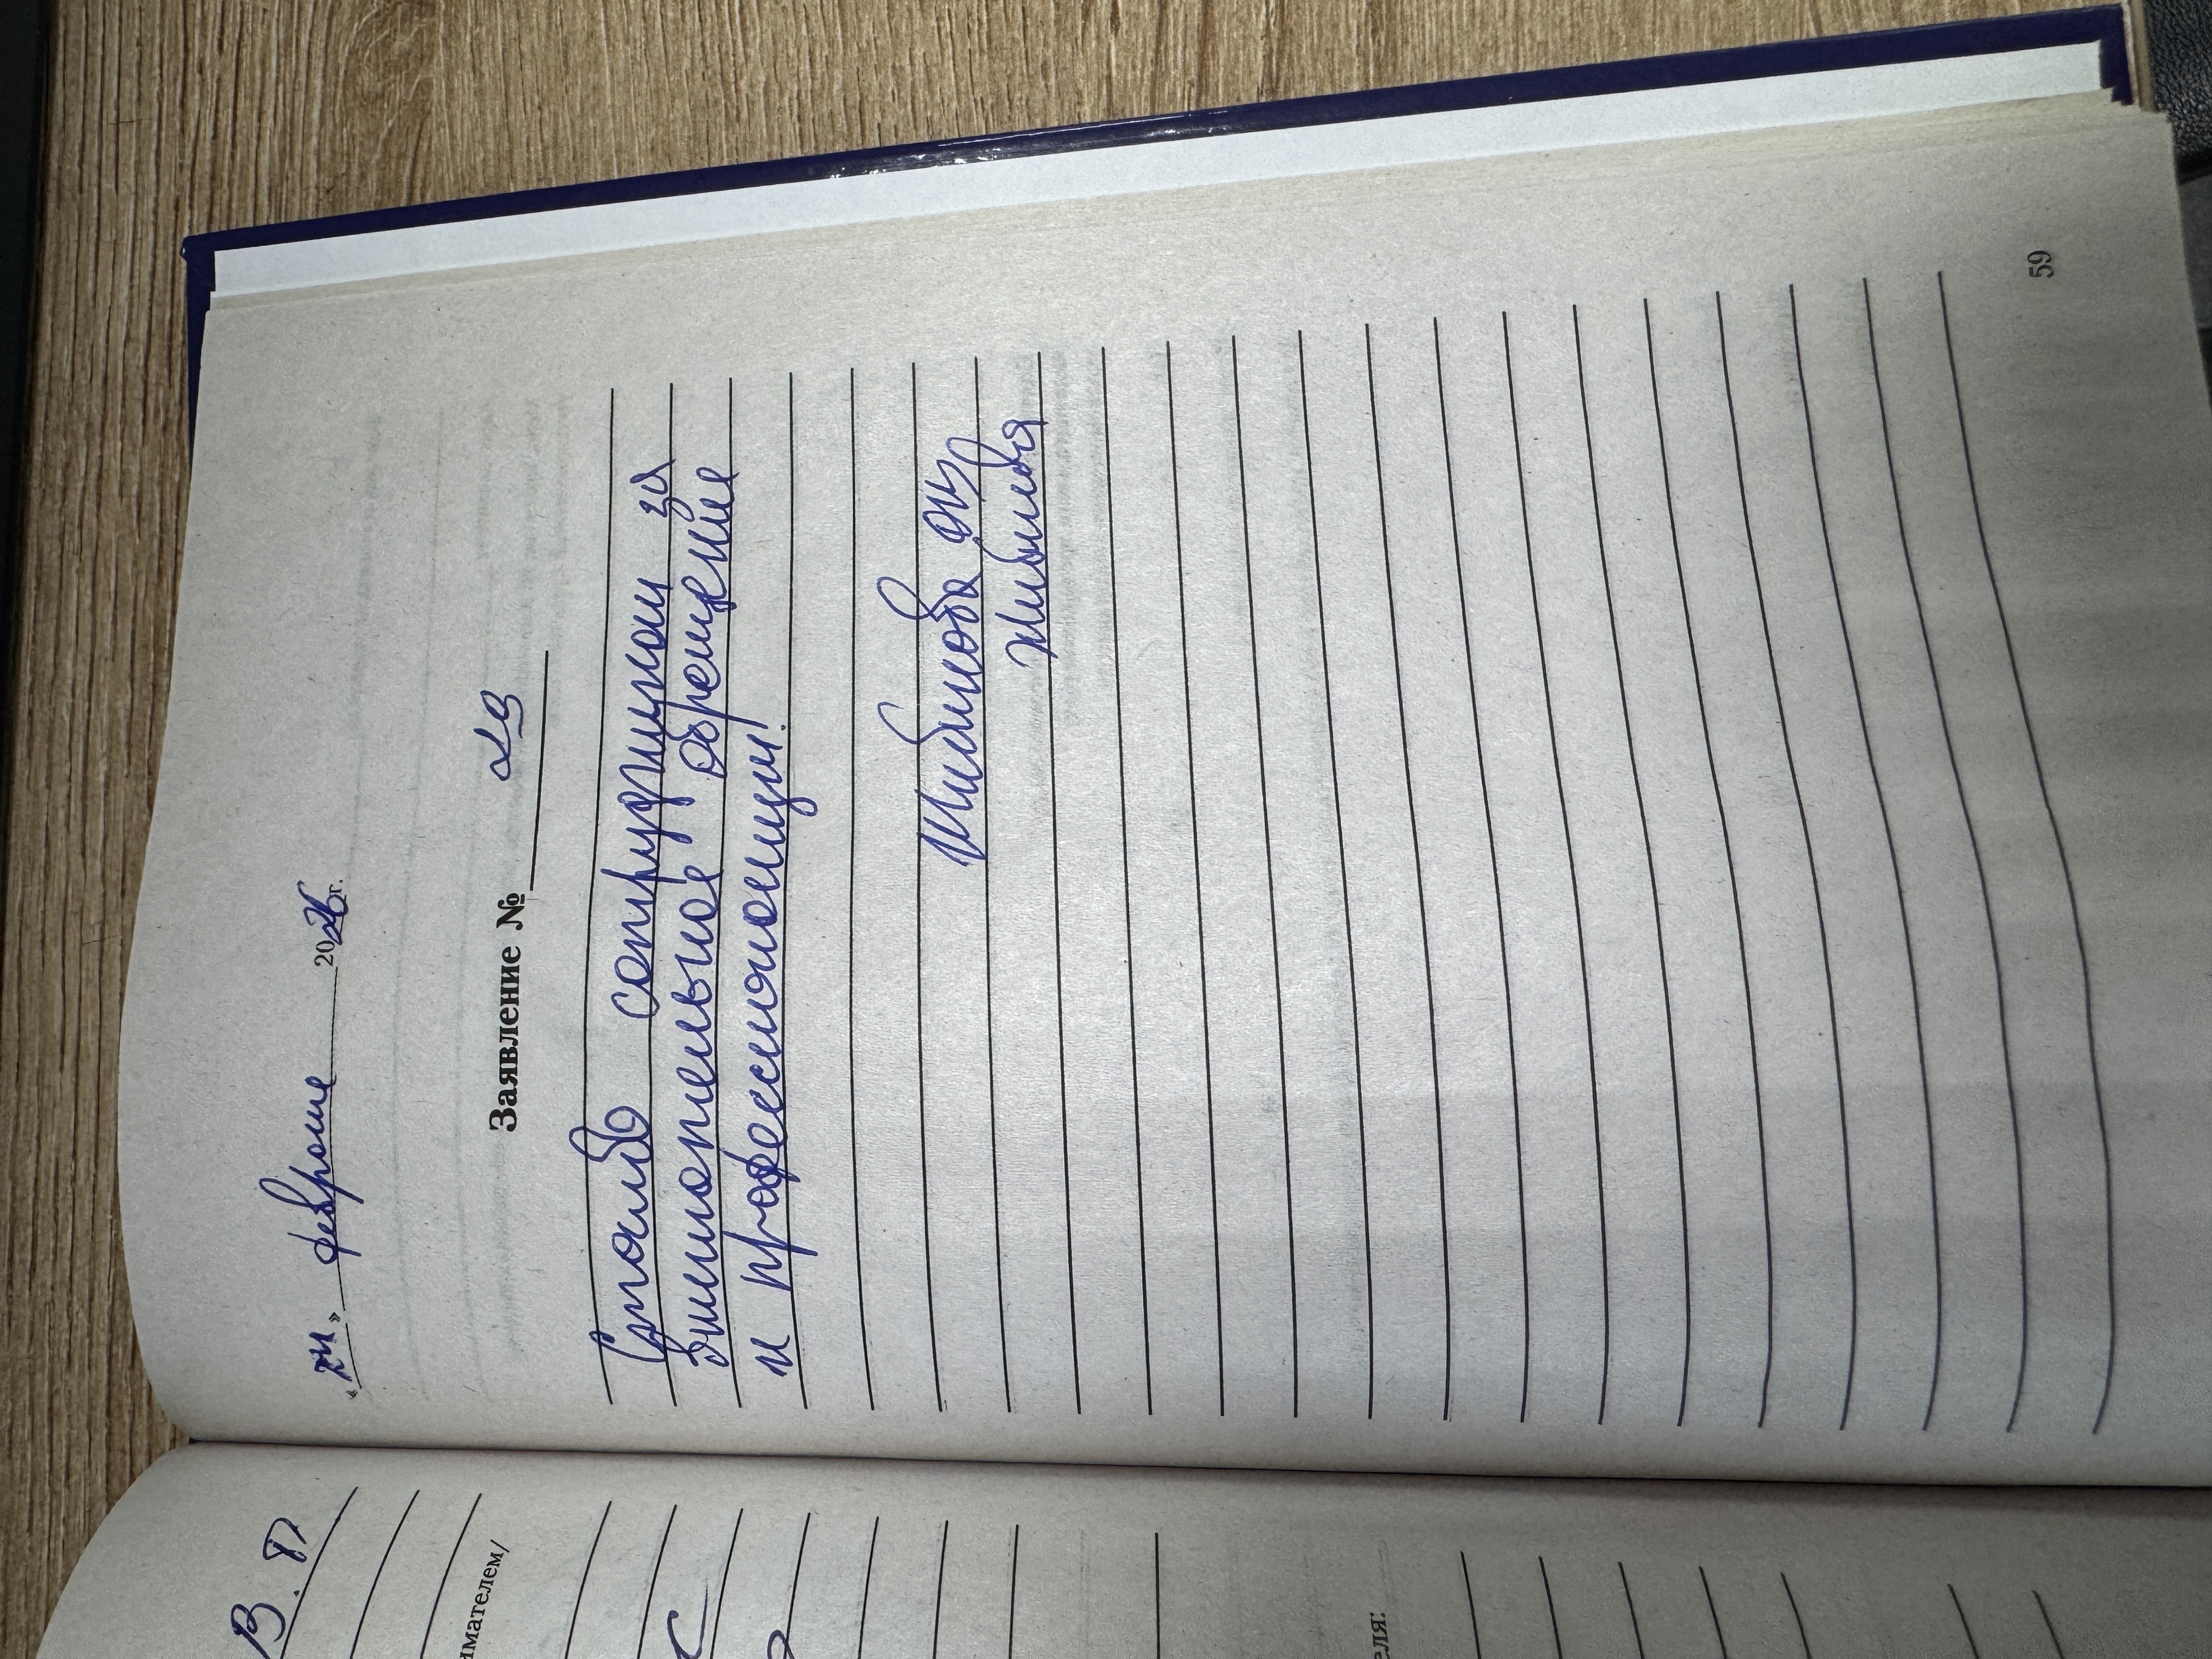 « 24 » февраля 2026 г.
Заявление № 29
Спасибо сотрудникам за
внимательное обращение
и профессионализм!
Шибанова
59
В. П
имателем/
еля: